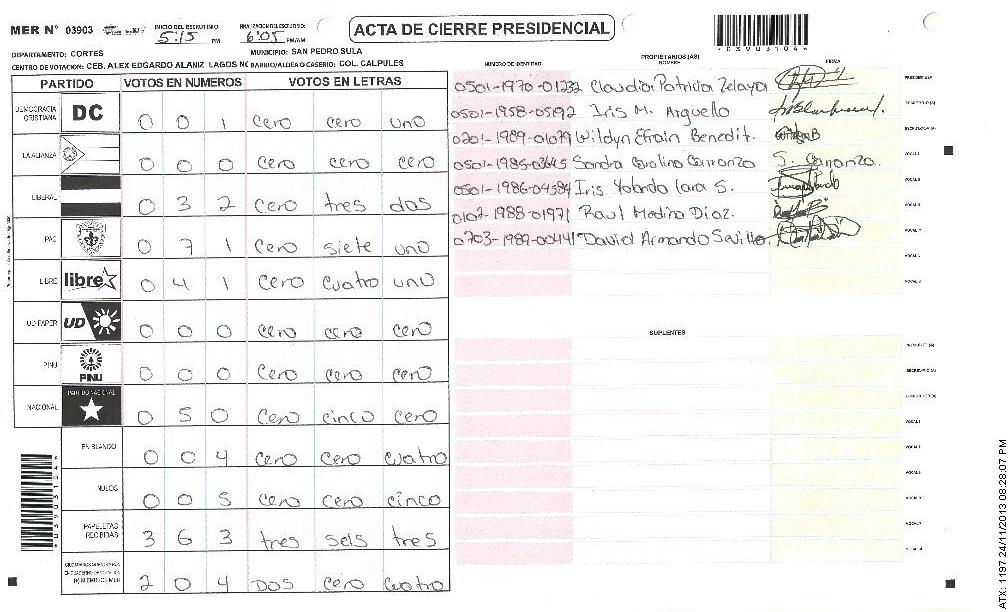 MER N° 03903
INICIO DEL ESCRUTINIO 5:15 PM
FINALIZACION DEL ESCRUTINIO: 6:05 PM/AM
ACTA DE CIERRE PRESIDENCIAL
DEPARTAMENTO: CORTES MUNICIPIO: SAN PEDRO SULA
CENTRO DE VOTACION: CEB. ALEX EDGARDO ALANIZ LAGOS NO BARRIO/ALDEA O CASERIO: COL. CALPULES
PARTIDO VOTOS EN NUMEROS VOTOS EN LETRAS
DEMOCRACIA CRISTIANA DC 0 0 1 cero cero uno
LA ALIANZA 0 0 0 cero cero cero
LIBERAL 0 3 2 cero tres dos
PAC 0 7 1 cero siete uno
LIBRE libre 0 4 1 cero cuatro uno
UD-FAPER UD 0 0 0 cero cero cero
PINU PINU 0 0 0 cero cero cero
NACIONAL PARTIDO NACIONAL 0 5 0 cero cinco cero
EN BLANCO 0 0 4 cero cero cuatro
NULOS 0 0 5 cero cero cinco
PAPELETAS RECIBIDAS 3 6 3 tres seis tres
2 0 4 Dos cero cuatro
PROPIETARIOS (AS)
NUMERO DE IDENTIDAD NOMBRE FIRMA
0501-1970-01232 Claudia Patricia Zelaya
0501-1958-05192 Iris M. Arguello
0201-1989-01079 Wildyn Efrain Benedit.
0501-1985-03645 Sandra Carolina Carranza S. Carranza.
0501-1986-04584 Iris Yolanda Lara S.
0107-1988-01971 Raul Medina Diaz.
0703-1989-00441 David Armando Sevilla.
SUPLENTES
ATX: 1197 24/11/2013 08:28:07 PM